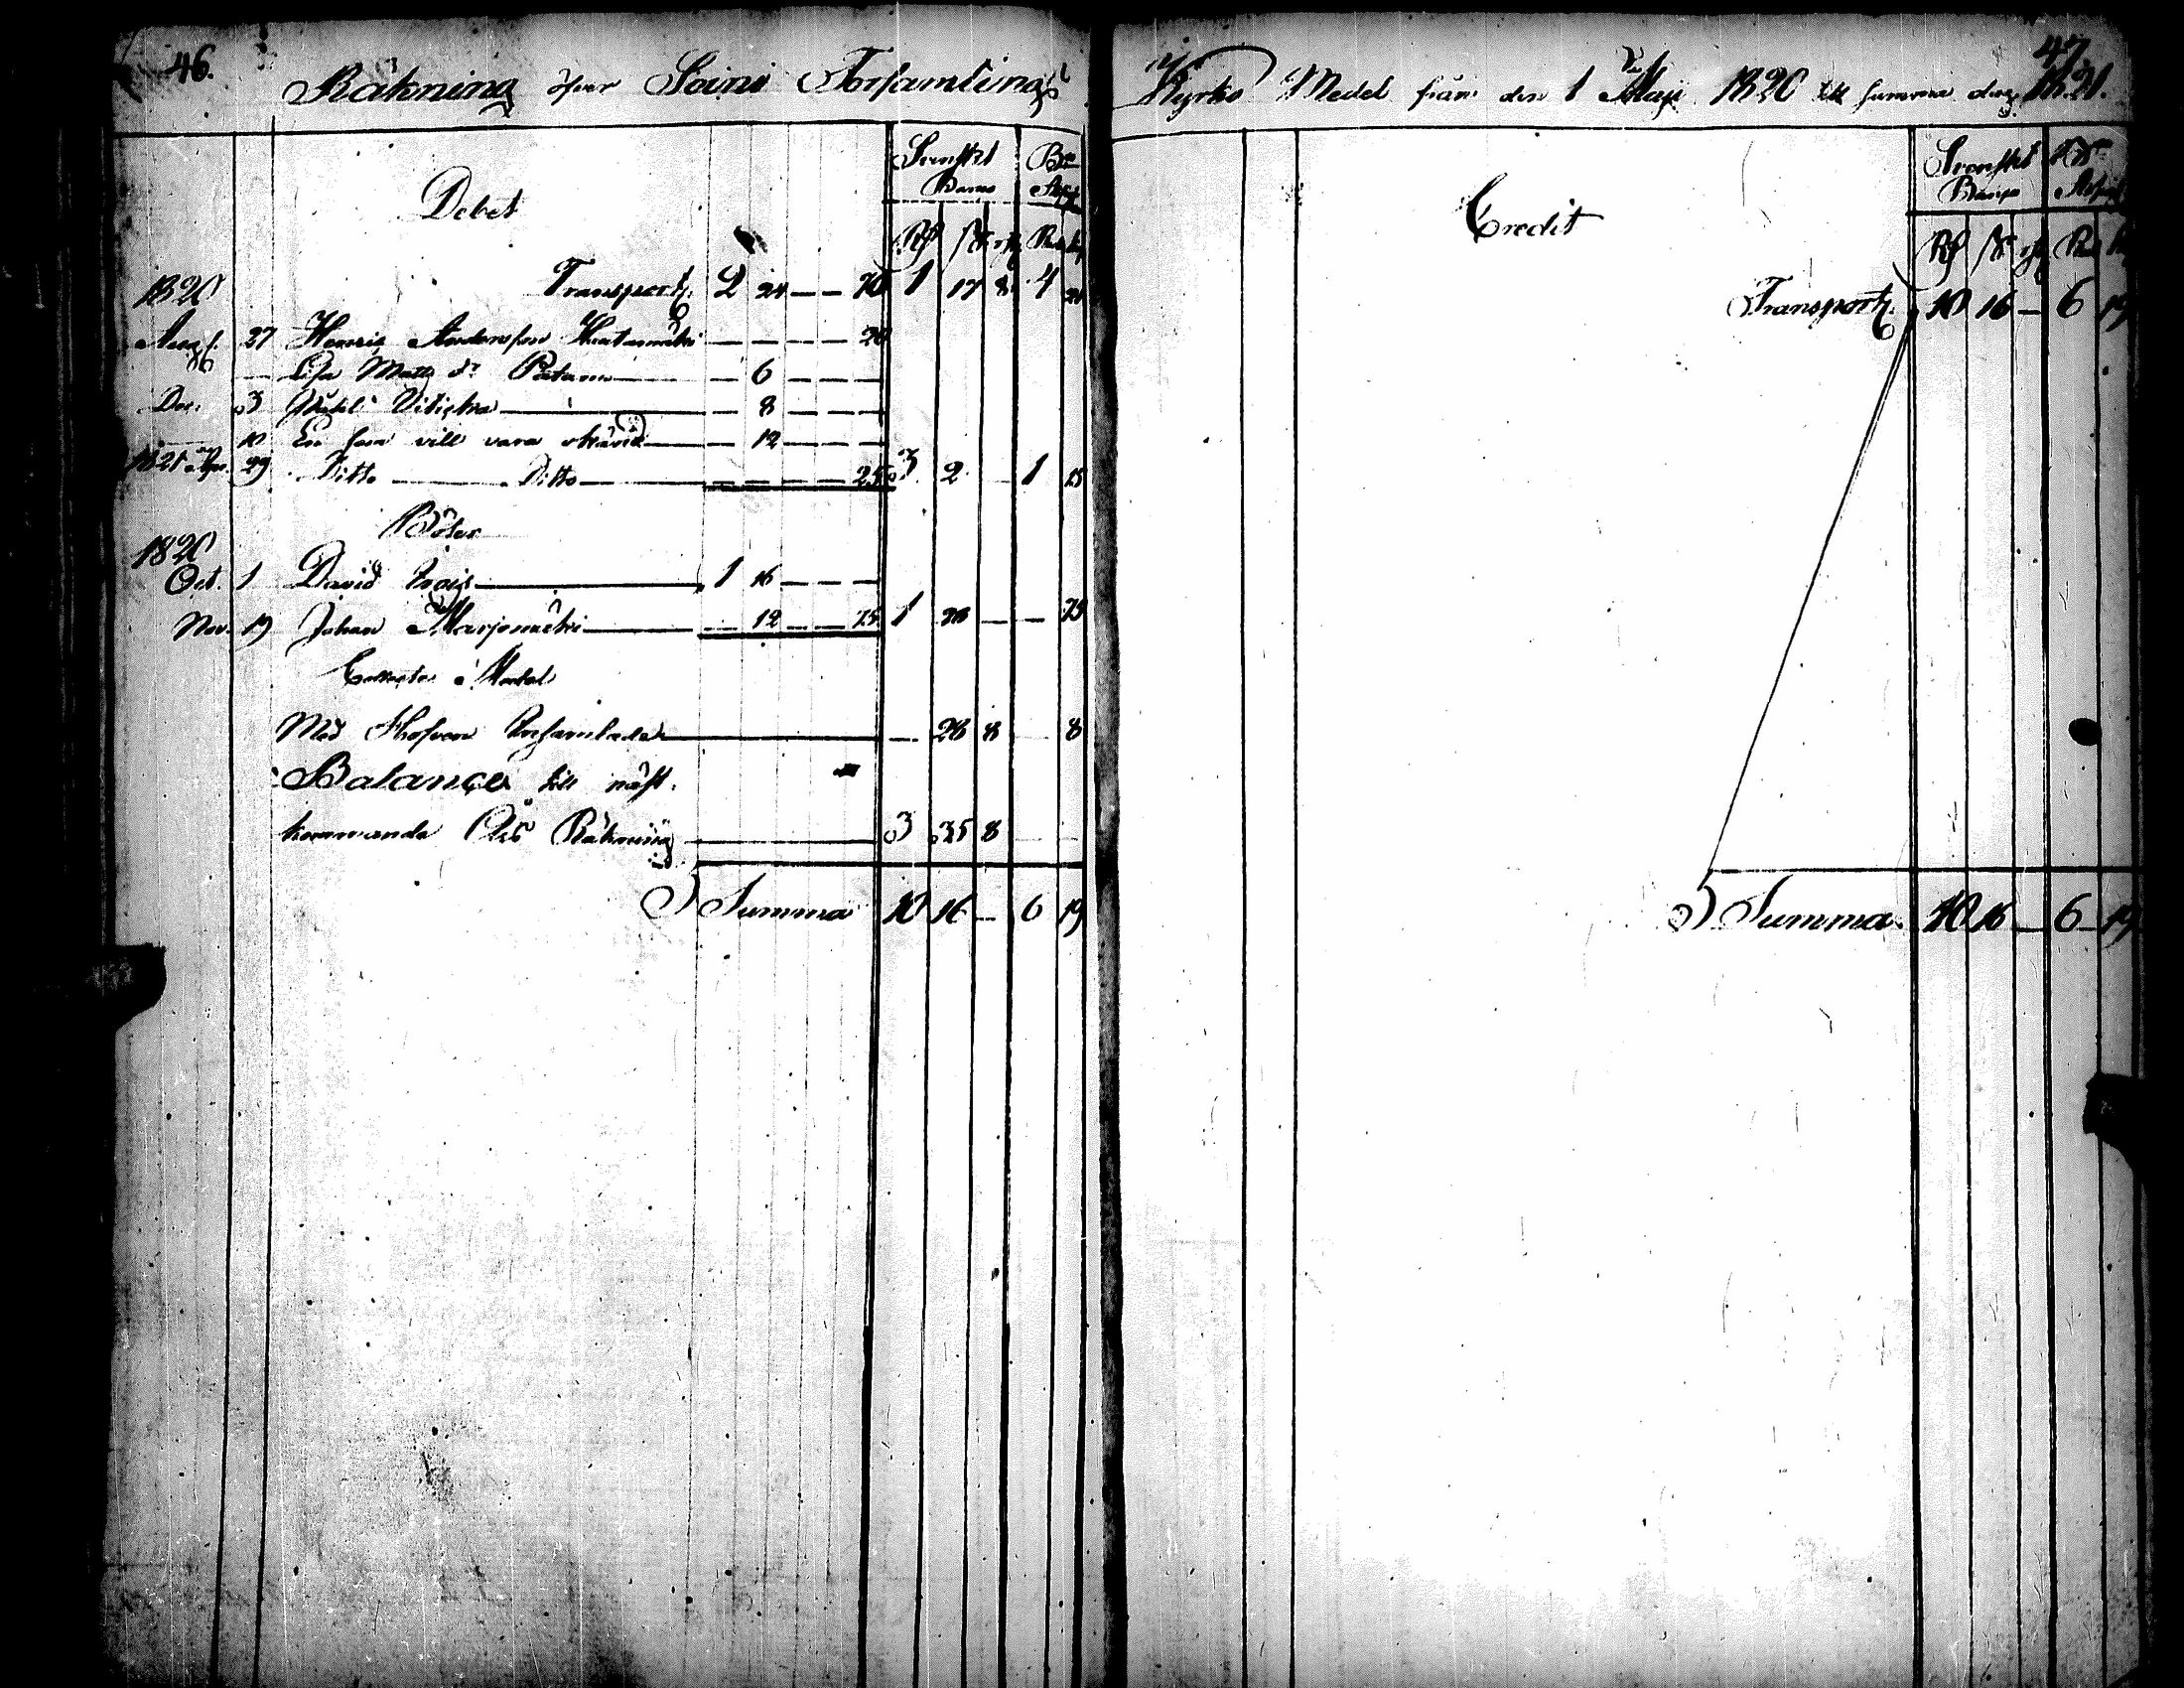 46.
Räkning öfver Soini Församlings
Debet
Svenskt Banco
Rd sk rst
1820
Transport. 2 24 — — 70 1 17 8 4 21
Aug. 27 Henric Andersson — — — — 20
Lisa Matts dr — 6 — — —
Dec. 3 — 8 — — —
10 En som vill vara okänd — 12 — — —
1821 Apr. 29 Ditto Ditto — — — — 25 3 2 — 1 15
Böter
1820
Oct. 1 David 1 16 — — —
Nov. 19 Johan Marjomäki — 12 — — 75 1 28 — — 75
Collecte Medel
Med Håfven Insamlade — 28 8 8
Balance till näst
kommande Års Räkning 3 35 8
Summa 10 16 — 6 19
47.
Kyrko Medel från den 1 Maji 1820 till samma dag 1821.
Credit
Svenskt Banco
Rd sk rst
Transport. 10 16 — 6 19
Summa. 10 16 — 6 19